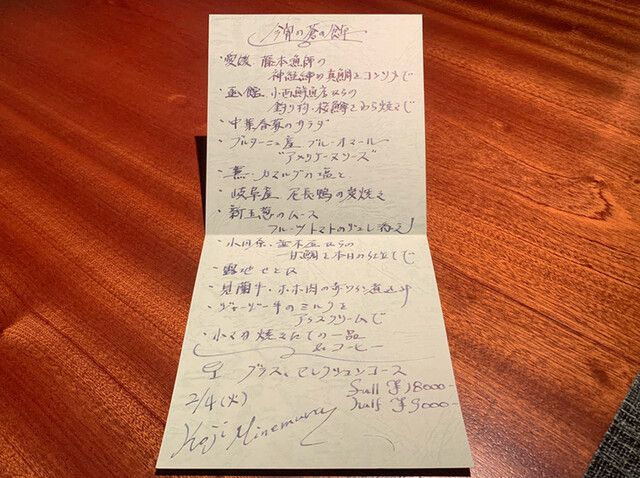 今宵の蒼の饗
・愛媛 藤本漁師の
神経締め真鯛をコンソメで
・函館 小西鮮魚店からの
釣り物・桜鱒をわら焼きで
・中葉春菊のサラダ
・ブルターニュ産 ブルーオマール
"アメリケーヌソース"
・蕪・カマルグの塩と
・岐阜産 尾長鴨の炭焼き
・新玉葱のムース
フルーツトマトのジュレ添え
・小田原・
甘鯛を本日の仕立てで
・露地せとか
・見蘭牛・ホホ肉の赤ワイン煮込み
・ジャージー牛のミルクを
アイスクリームで
・小マカ焼きたての一品
& コーヒー
グラス、セレクションコース
2/4(火)
full ¥18000-
half ¥9000-
Koji Minemura